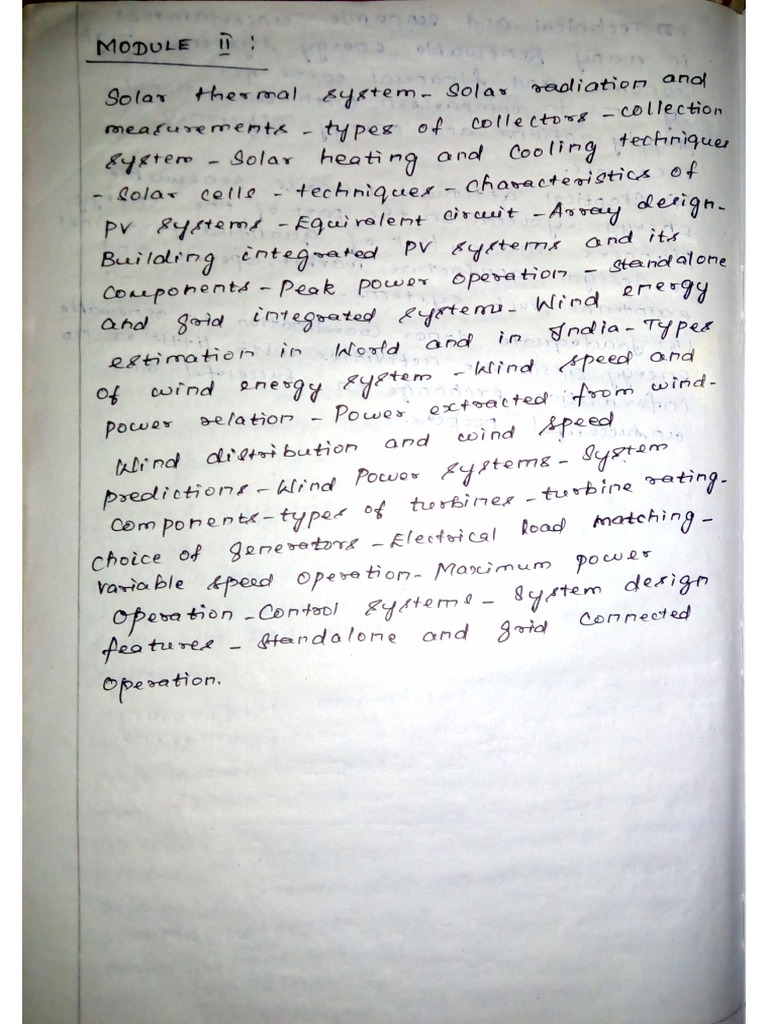 MODULE II :
Solar thermal system - Solar radiation and
measurements - types of collectors - collection
system - Solar heating and cooling techniques
- Solar cells - techniques - characteristics of
PV systems - Equivalent circuit - Array design -
Building integrated PV systems and its
components - Peak power operation - standalone
and grid integrated systems - Wind energy
estimation in World and in India - Types
of wind energy system - Wind speed and
power relation - Power extracted from wind -
Wind distribution and wind speed
predictions - Wind Power systems - System
components - types of turbines - turbine rating -
choice of generators - Electrical load matching -
variable speed operation - Maximum power
operation - Control systems - System design
features - Standalone and grid connected
operation.